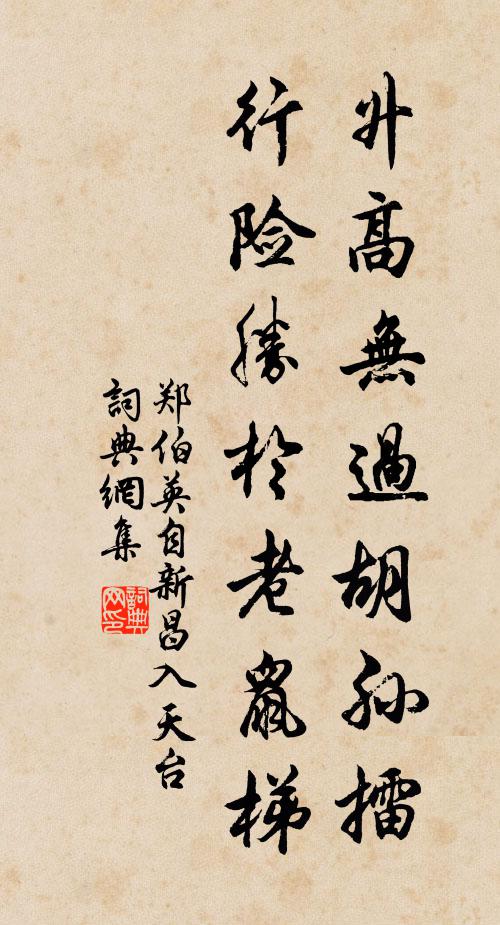 升高無過胡孙擂
行险勝於老鼠梯
郑伯英自新昌入天台
詞典網集
詞典网印